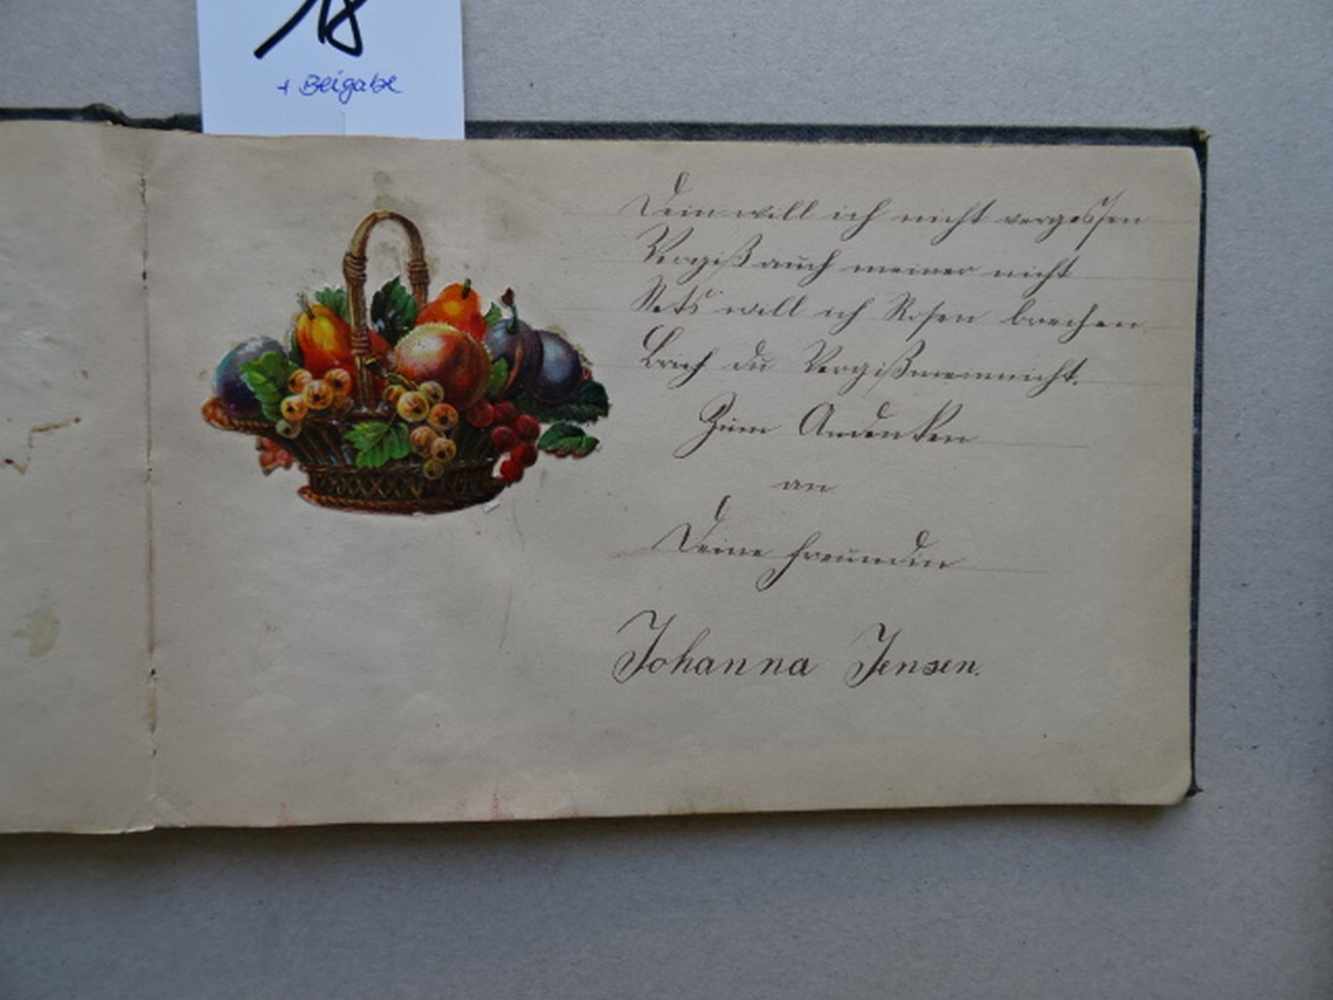 18
+ Beigabe
Dein will ich nicht vergessen
Vergiß auch meiner nicht
Stets will ich Rosen brechen
Brich du Vergißmeinnicht.
Zum Andenken
an
Deine Freundin
Johanna Jensen.